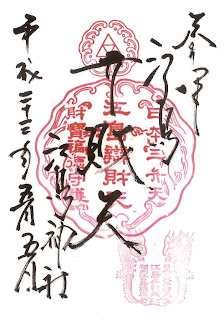 奉拝
江島
弁財天
江島神社
平成二十三年五月五日
日本三弁天
江島辨財天
財寶福徳守護